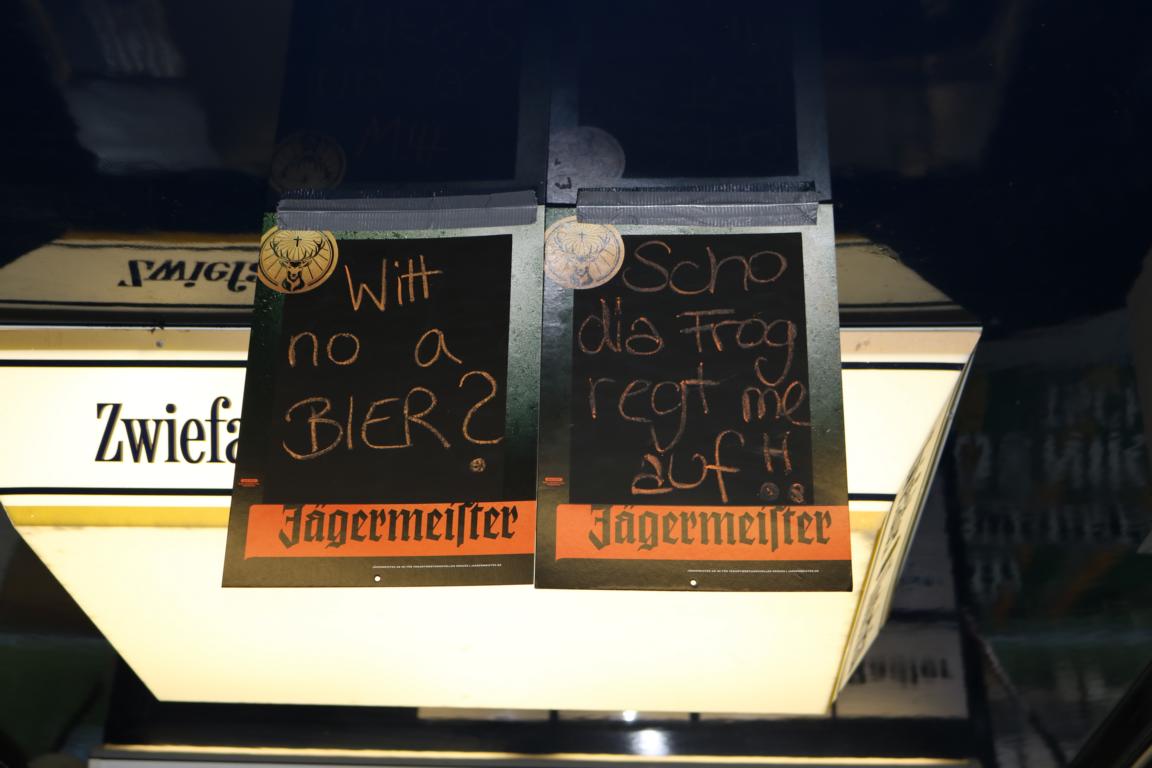 Zwiefa
Witt
no a
BIER?
Jägermeister
Scho
dia Frog
regt me
auf!!
Jägermeister